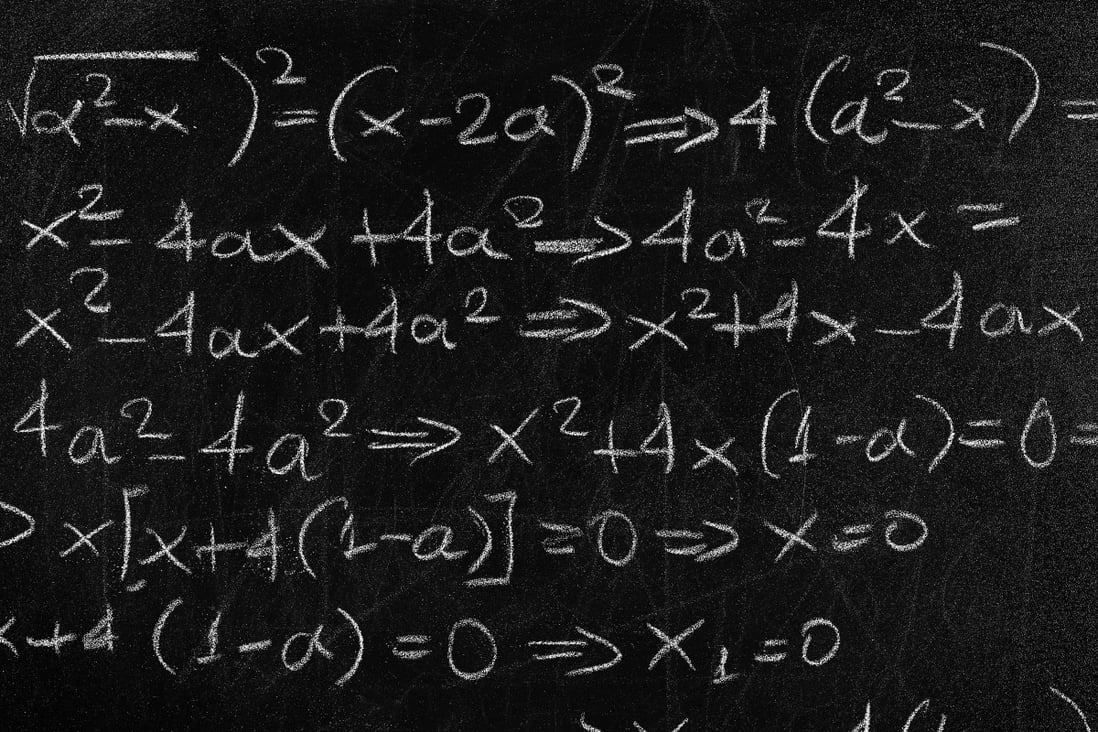 √(a²-x))² = (x-2a)² ⇒ 4(a²-x) =
x² - 4ax + 4a² ⇒ 4a² - 4x =
x² - 4ax + 4a² ⇒ x² + 4x - 4ax
4a² - 4a² ⇒ x² + 4x(1-a) = 0 =
> x[x+4(1-a)] = 0 ⇒ x = 0
x+4(1-a) = 0 ⇒ x₁ = 0